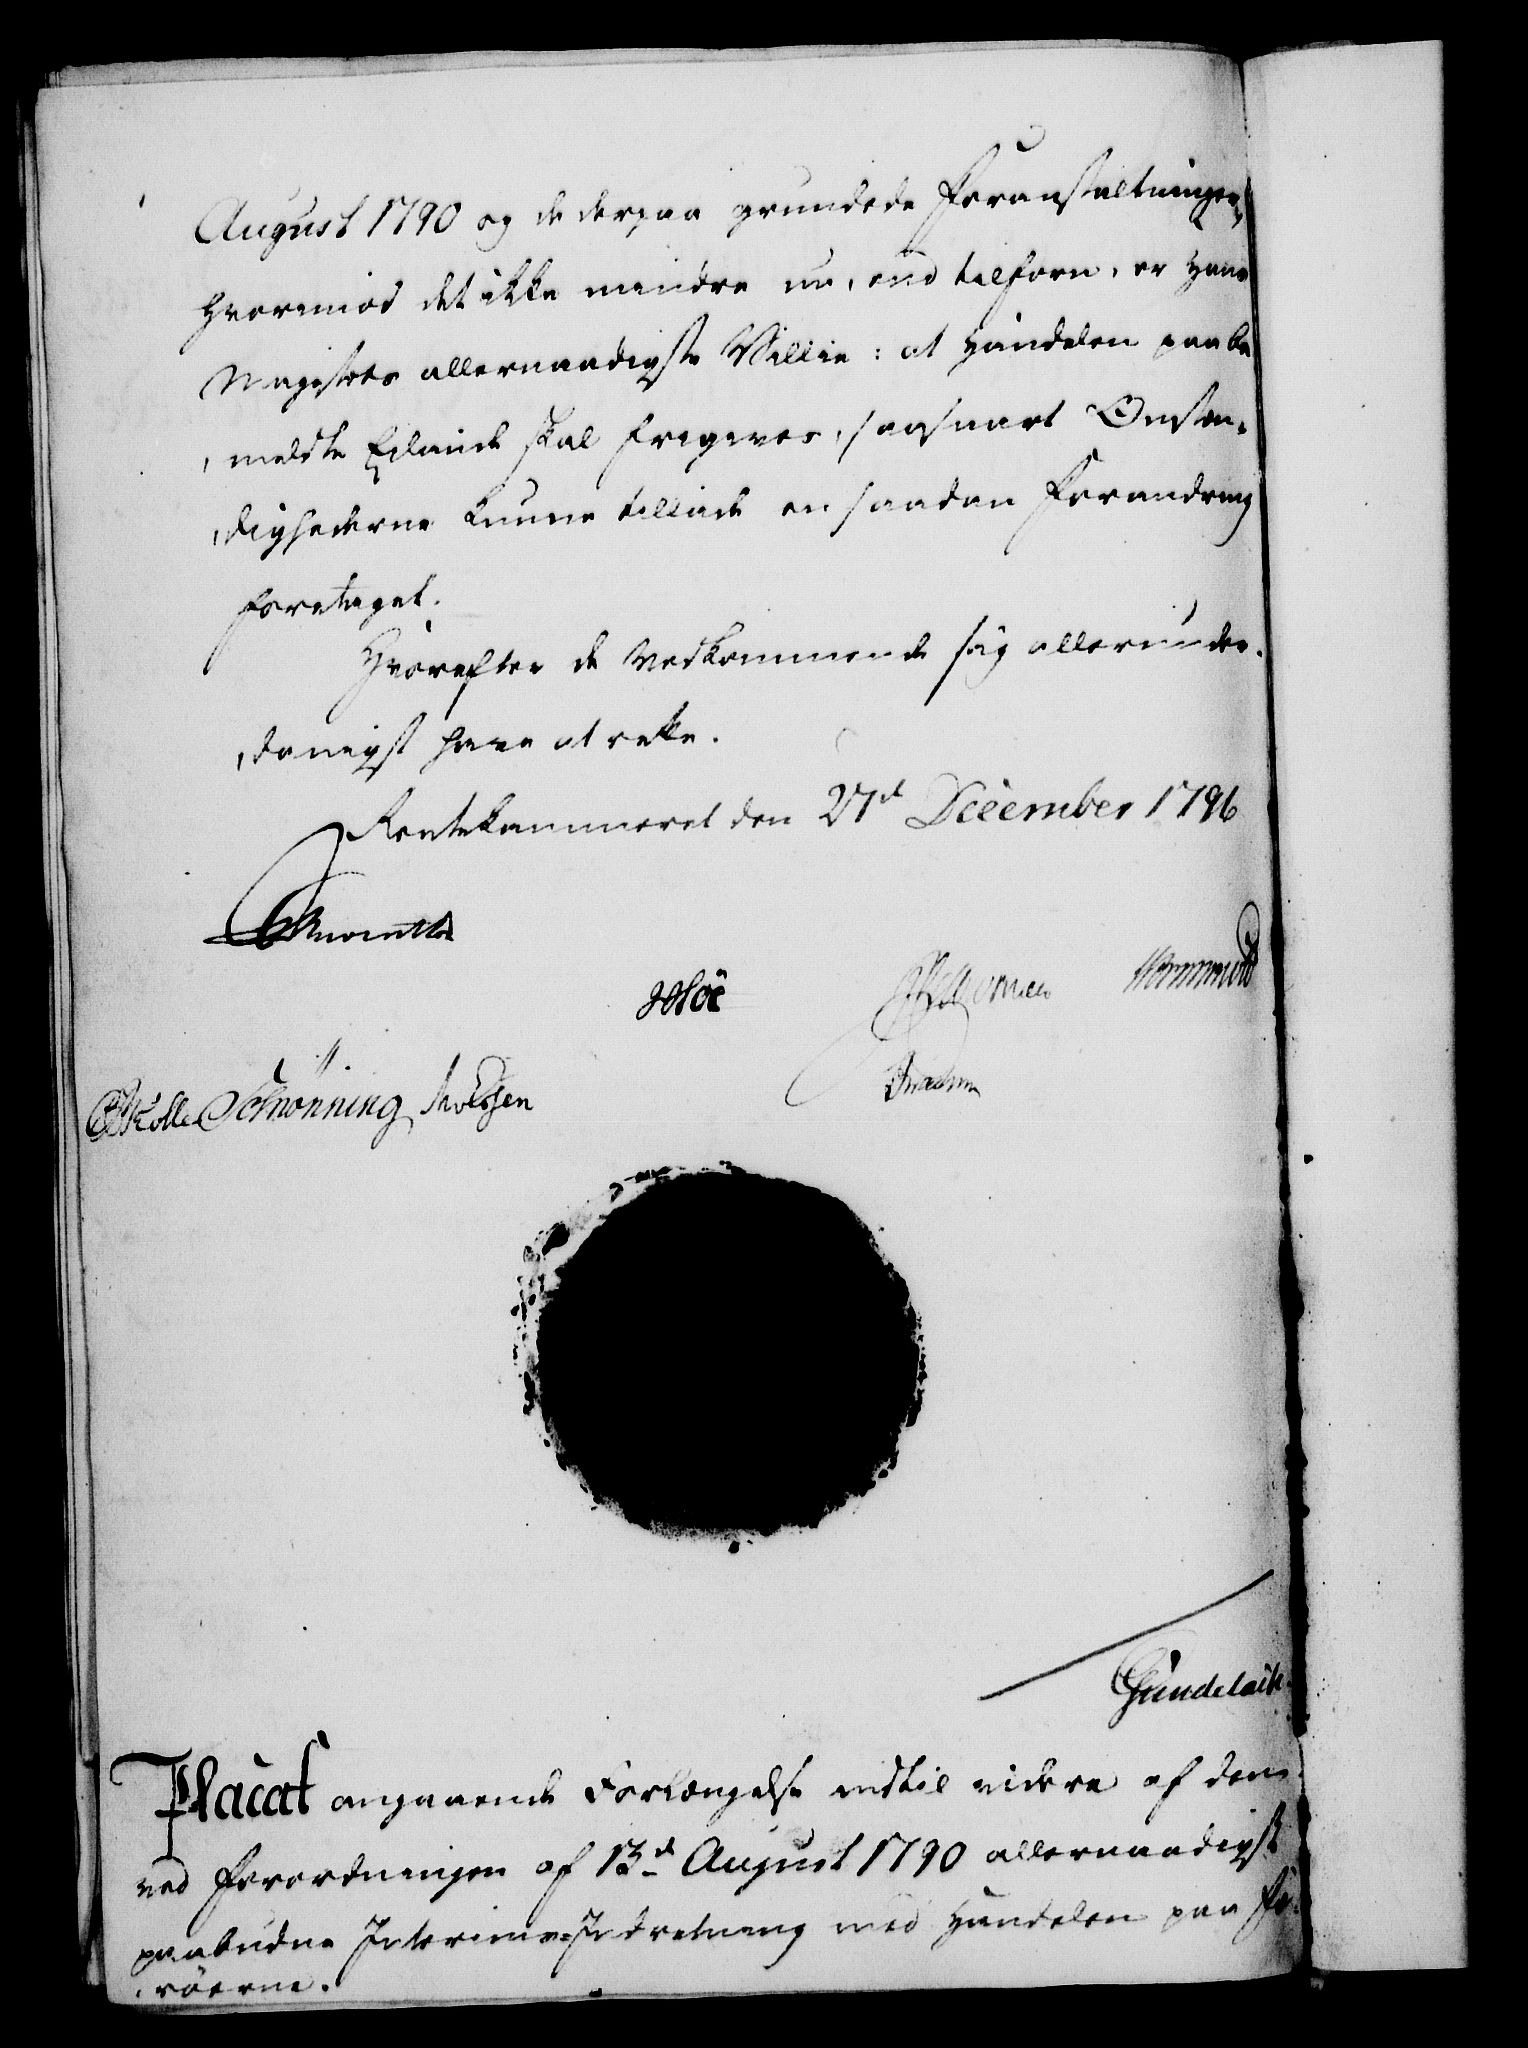 August 1790 og de derpaa grundede Foranstaltninger,
hvorimod det ikke mindre nu, end tilforn, er Hans
Majestæts allernaadigste Villie: at Handelen paa be
meldte Eilande skal frigives, saasnart Omstæn-
dighederne kunne tillade en saadan Forandring
foretaget.
Hvorefter de Vedkommende sig allerunder-
danigst have at rette.
Rentekammeret den 27d December 1796
Wormmuld
Schönning
Gundelach
Placat angaaende Forlængelse indtil videre af den
ved Forordningen af 13d August 1790 allernaadigst
paabudne Interims-Indretning med Handelen paa Fæ-
röerne.